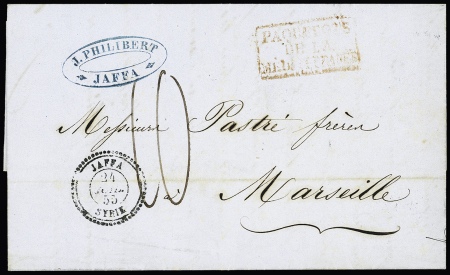 J. PHILIBERT
JAFFA
PAQUEBOTS
DE LA
MÉDITERRANÉE
10
Messieurs Pastré frères
à
Marseille
JAFFA
24
55
SYRIE